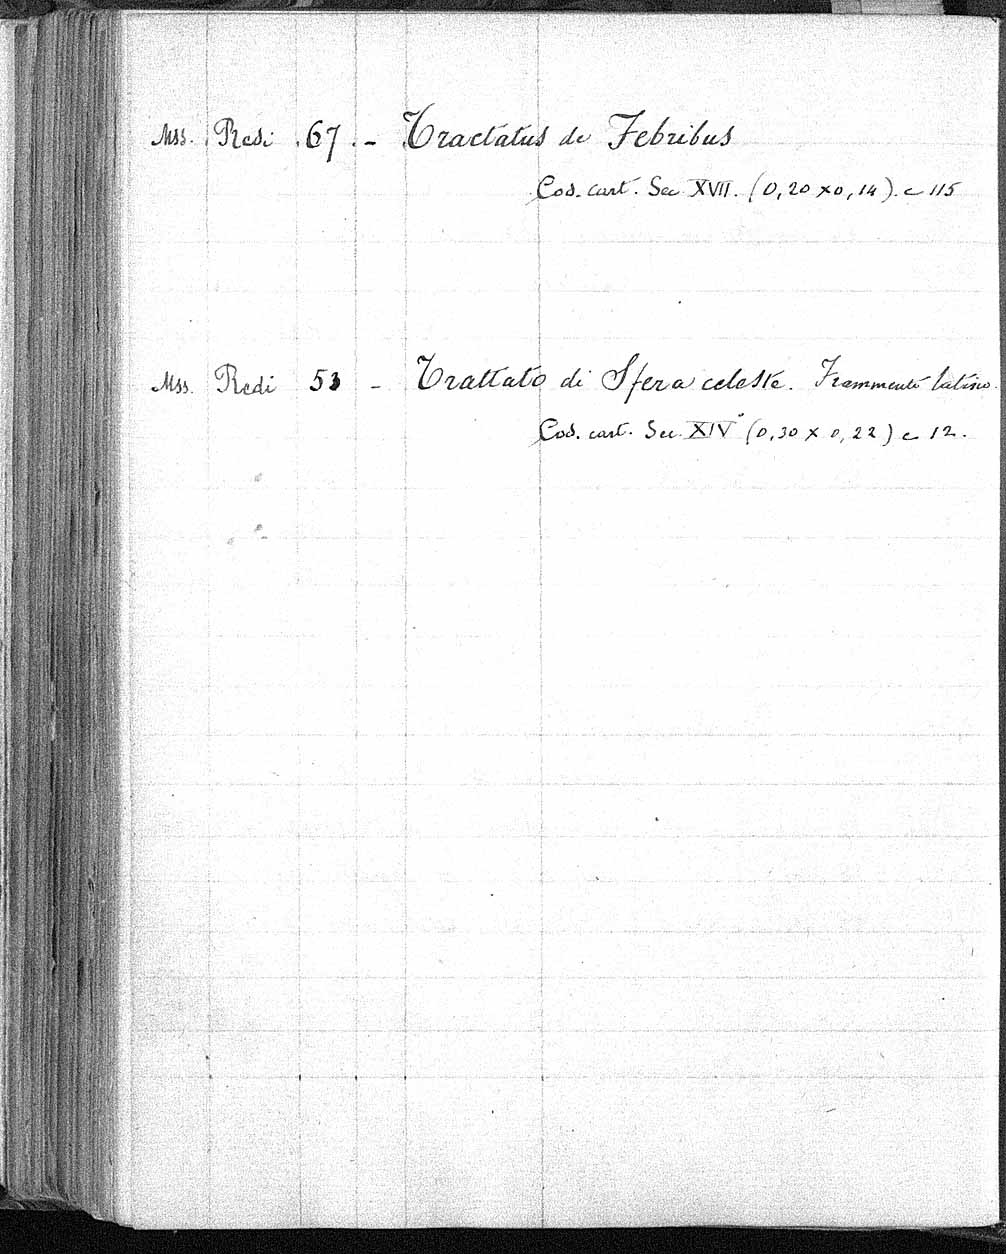 Mss. Redi 67. - Tractatus de Febribus
Cod. cart. Sec XVII. (0,20 x 0,14). c 115
Mss. Redi 53 - Trattato di Sfera celeste. Frammento latino.
Cod. cart. Sec. XIV° (0,30 x 0,22) c 12.